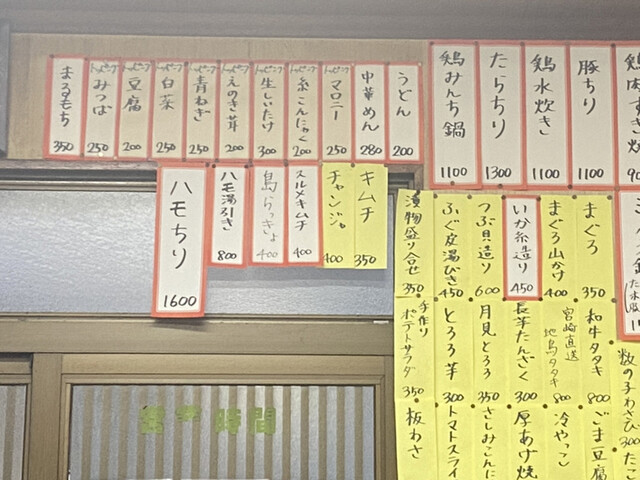 鶏肉すき焼 90
豚ちり 1100
鶏水炊き 1100
たらちり 1300
鶏みんち鍋 1100
うどん 200
中華めん 280
トッピング マロニー 250
トッピング 糸こんにゃく 200
トッピング 生しいたけ 300
トッピング えのき茸 200
トッピング 青ねぎ 250
トッピング 白菜 250
トッピング 豆腐 200
トッピング みつば 250
まるもち 350
キムチ 350
チャンジャ 400
スルメキムチ 400
島らっきょ 400
ハモ湯引き 800
ハモちり 1600
まぐろ 350
まぐろ山かけ 400
いか糸造り 450
つぶ貝造り 600
ふぐ皮湯びき 450
漬物盛り合せ 350
数の子わさび 300
和牛タタキ 800
宮崎直送 地鳥タタキ 800
長芋たんざく 300
月見とろろ 350
とろろ芋 300
手作り ポテトサラダ 350
たこ
ごま豆腐
冷やっこ
厚あげ焼
さしみこんに
トマトスライ
板わさ
時間